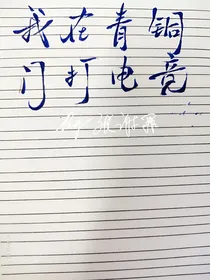 我在青铜
门打电竞